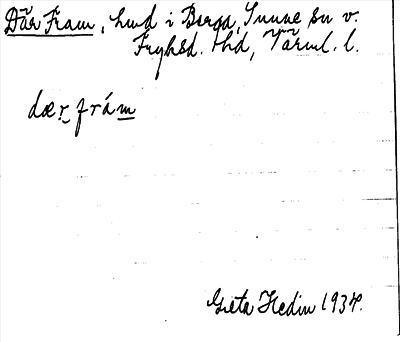 Där Fram, hmd i Borga, Sunne sn v.
Fryksd. hd, Värml. l.
dær frám
Greta Hedin 1934.